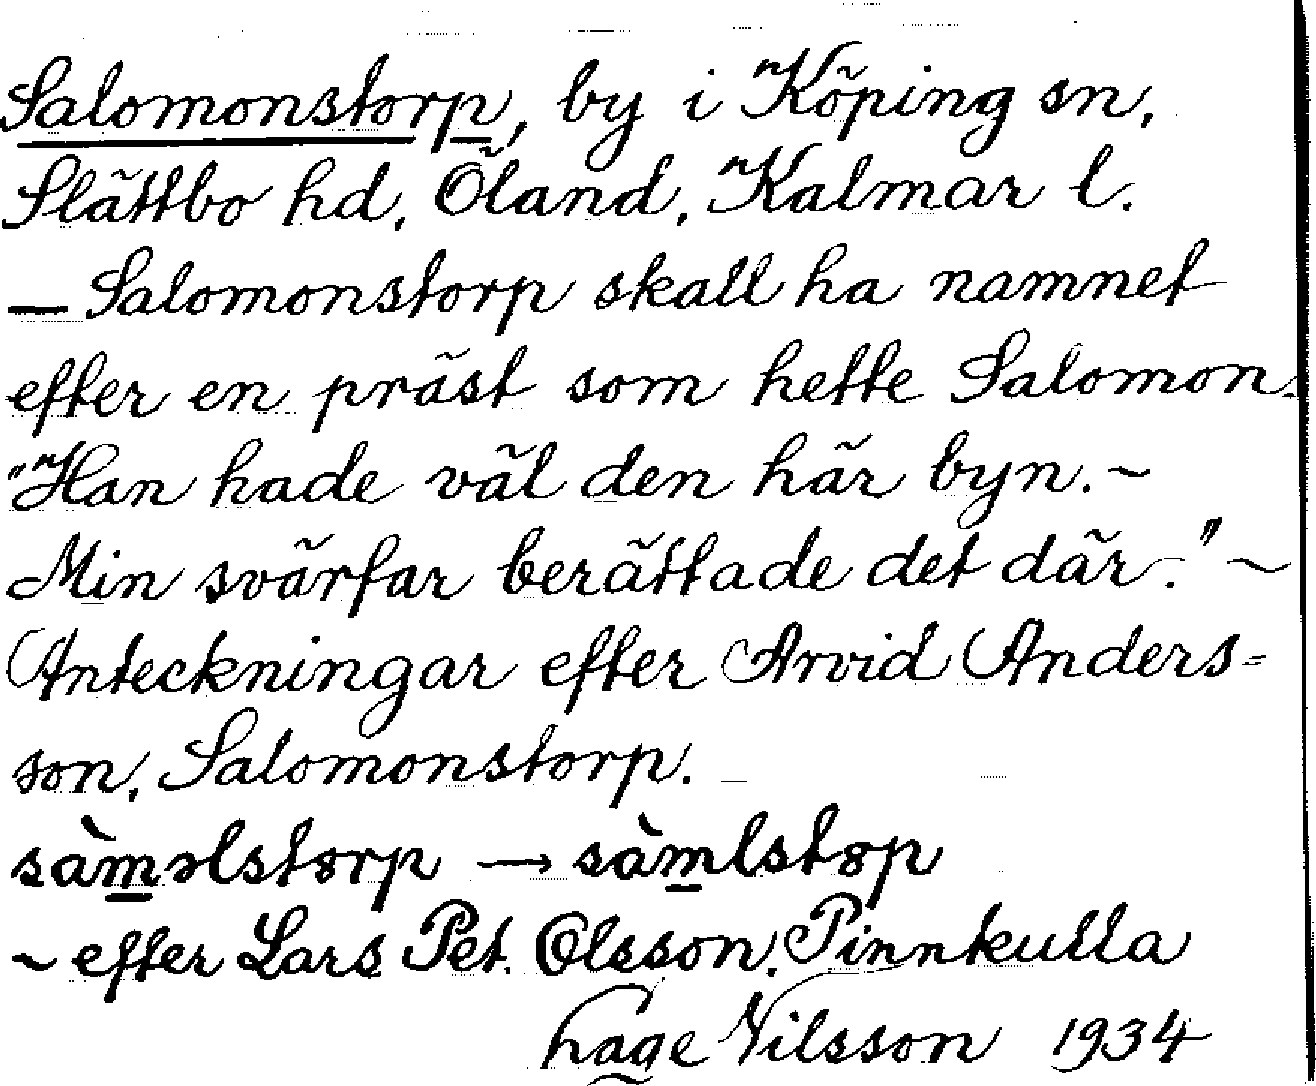 Salomonstorp, by i Köping sn,
Slättbo hd, Öland, Kalmar l.
— Salomonstorp skall ha namnet
efter en präst som hette Salomon.
"Han hade väl den här byn. ~
Min svärfar berättade det där." ~
Anteckningar efter Arvid Anders=
son, Salomonstorp. —
sàməlstørp → sàmlstøp
~ efter Lars Pet. Olsson, Pinnkulla
Hage Nilsson 1934